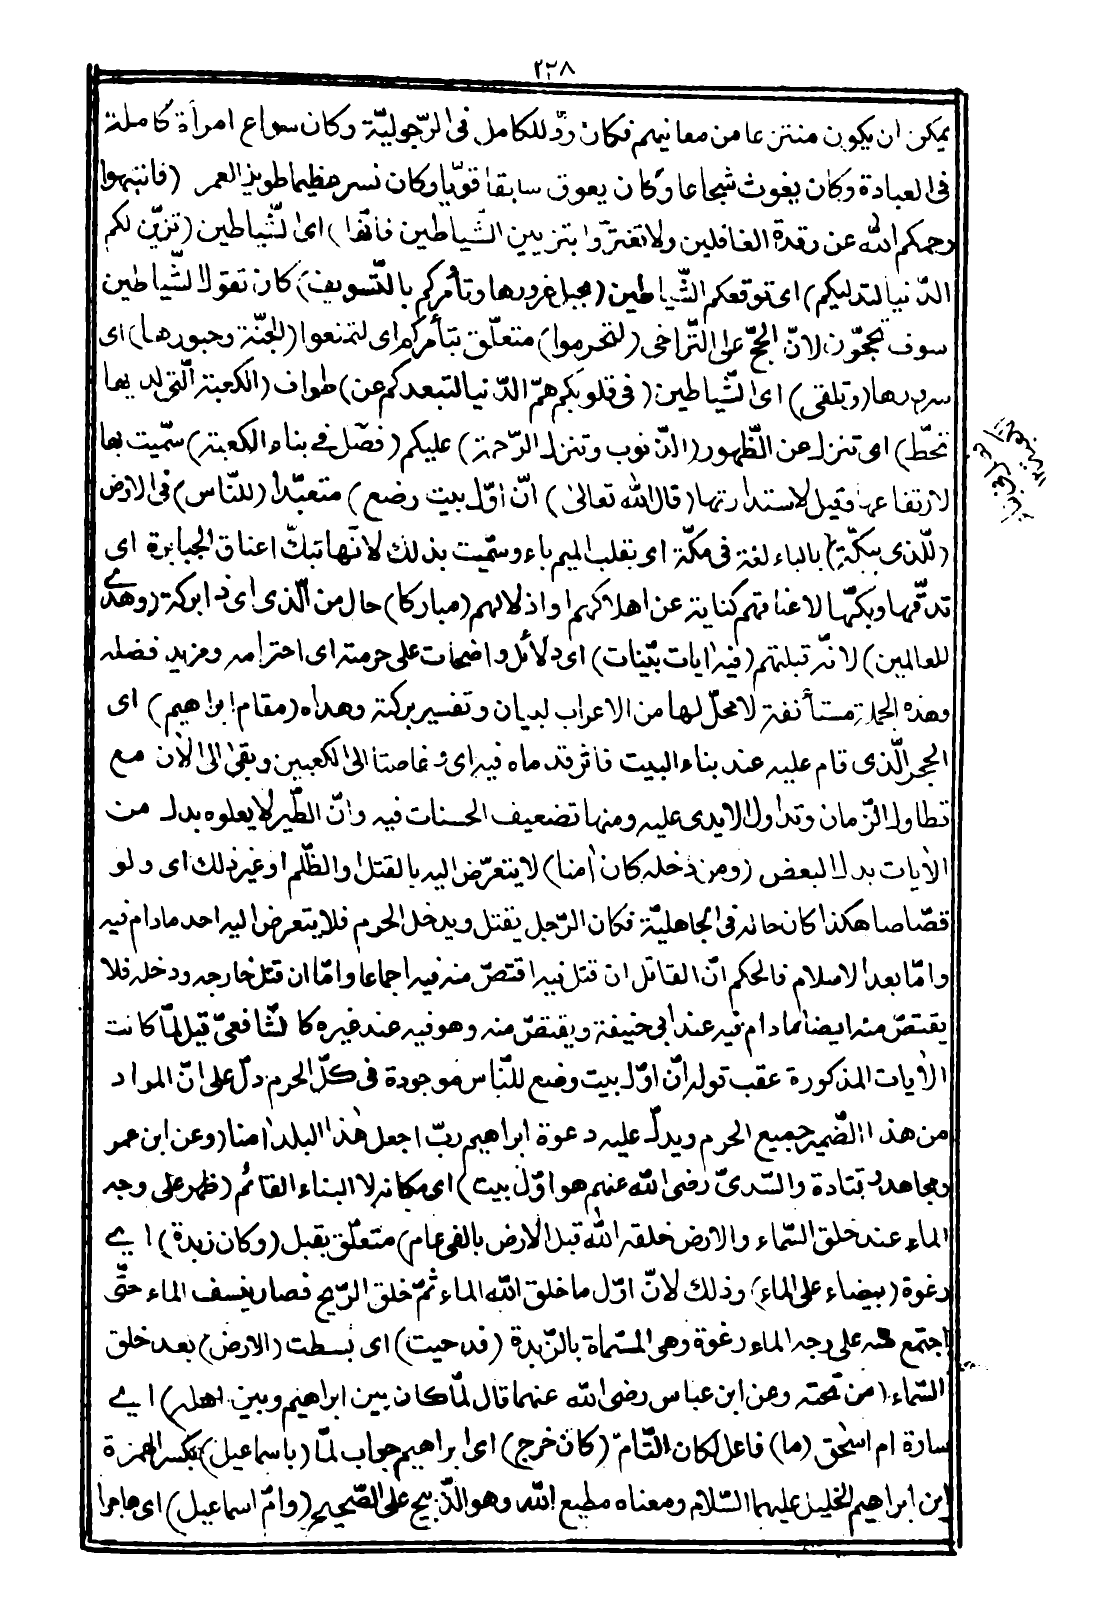 ٢٣٨
يمكن ان يكون منتزعا من معانيهم فكان ودّ للكامل فى الرّجوليّة وكان سواع امرأة كاملة
فى العبادة وكان يغوث شجاعا وكان يعوق سابقا قويّا وكان نسر عظيما طويل العمر (فانتبهوا
رحمكم اللّه عن رقدة الغافلين ولا تغترّوا بتزيين الشّياطين فانّها) اى الشّياطين (تزيّن لكم
الدّنيا لتدليكم) اى توقعكم الشّياطين (بحبل غرورها وتأمركم بالتّسويف) كان تقول الشّياطين
سوف تحجّون لانّ الحجّ على التّراخى (لتحرموا) متعلّق بتأمركم اى لتمنعوا (الجنّة وحبورها) اى
سرورها (وتلقى) اى الشّياطين (فى قلوبكم همّ الدّنيا لتبعدكم عن) طواف (الكعبة الّتى لديها
تحطّ) اى تنزل عن الظّهور (الذّنوب وتنزل الرّحمة) عليكم (فصل فى بناء الكعبة) سمّيت بها
لارتفاعها وقيل لاستدارتها (قال اللّه تعالى) انّ اوّل بيت وضع) متعبّدا (للنّاس) فى الارض
(للّذى ببكّة) بالباء لغة فى مكّة اى بقلب الميم باء وسمّيت بذلك لانّها تبكّ اعناق الجبابرة اى
تدقّها وبكّها لاعناقهم كناية عن اهلاكهم او اذلالهم (مباركا) حال من الّذى اى ذا بركة (وهدى
للعالمين) لانّه قبلتهم (فيه ايات بيّنات) اى دلائل واضحات على حرمته اى احترامه ومزيد فضله
وهذه الجملة مستأنفة لا محلّ لها من الاعراب لبيان وتفسير بركته وهداه (مقام ابراهيم) اى
الحجر الّذى قام عليه عند بناء البيت فاثر قدماه فيه اى وغاصتا الى الكعبين وبقى الى الآن مع
تطاول الزّمان وتداول الايدى عليه ومنها تضعيف الحسنات فيه وانّ الطّير لا يعلوه بدل من
الآيات بدل البعض (ومن دخله كان آمنا) لا يتعرّض اليه بالقتل والظّلم او غير ذلك اى ولو
قصّاصا هكذا كان حاله فى الجاهليّة فكان الرّجل يقتل ويدخل الحرم فلا يتعرض اليه احد مادام فيه
وامّا بعد الاسلام فالحكم انّ القاتل ان قتل فيه اقتصّ منه فيه اجماعا وامّا ان قتل خارجه ودخله فلا
يقتصّ منه ايضا مادام فيه عند ابى حنيفة ويقتصّ منه وهو فيه عند غيره كالشّافعىّ قيل لمّا كانت
الآيات المذكورة عقب قوله انّ اوّل بيت وضع للنّاس موجودة فى كلّ الحرم دلّ على انّ المراد
من هذا الضّمير جميع الحرم ويدلّ عليه دعوة ابراهيم ربّ اجعل هٰذا البلد آمنا (وعن ابن عمر
ومجاهد وقتادة والسّدىّ رضى اللّه عنهم هو اوّل بيت) اى مكانه لا البناء القائم (ظهر على وجه
الماء عند خلق السّماء والارض خلقه اللّه قبل الارض بالفى عام) متعلّق بقبل (وكان زبدة) اى
رغوة (بيضاء على الماء) وذلك لانّ اوّل ما خلق اللّه الماء ثمّ خلق الرّيح فصار ينسف الماء حتّى
اجتمع منه على وجه الماء رغوة وهى المسّماة بالزّبدة (فدحيت) اى بسطت (الارض) بعد خلق
السّماء (من تحته وعن ابن عباس رضى اللّه عنهما قال لمّا كان بين ابراهيم وبين اهله) اى
سارة ام اسحٰق (ما) فاعل لكان التّامّ (كان خرج) اى ابراهيم جواب لمّا (باسماعيل) بكسر الهمزة
ابن ابراهيم الخليل عليهما السّلام ومعناه مطيع اللّه وهو الذّبيح على الصّحيح (وامّ اسماعيل) اى هاجرا